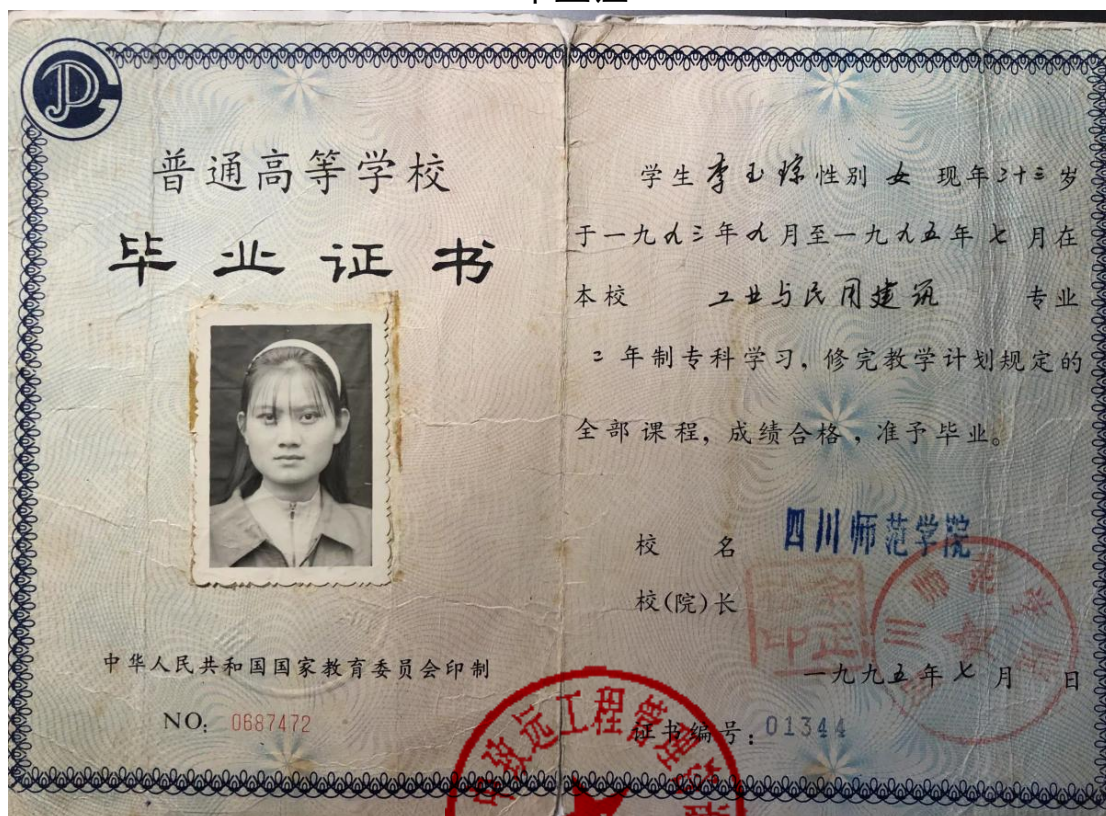 普通高等学校
毕业证书
中华人民共和国国家教育委员会印制
NO: 0687472
学生李玉琼性别 女 现年二十三岁
于一九九三年九月至一九九五年七月在
本校 工业与民用建筑 专业
二年制专科学习，修完教学计划规定的
全部课程，成绩合格，准予毕业。
校 名 四川师范学院
校(院)长
一九九五年七月 日
证书编号：01344
致远工程管理